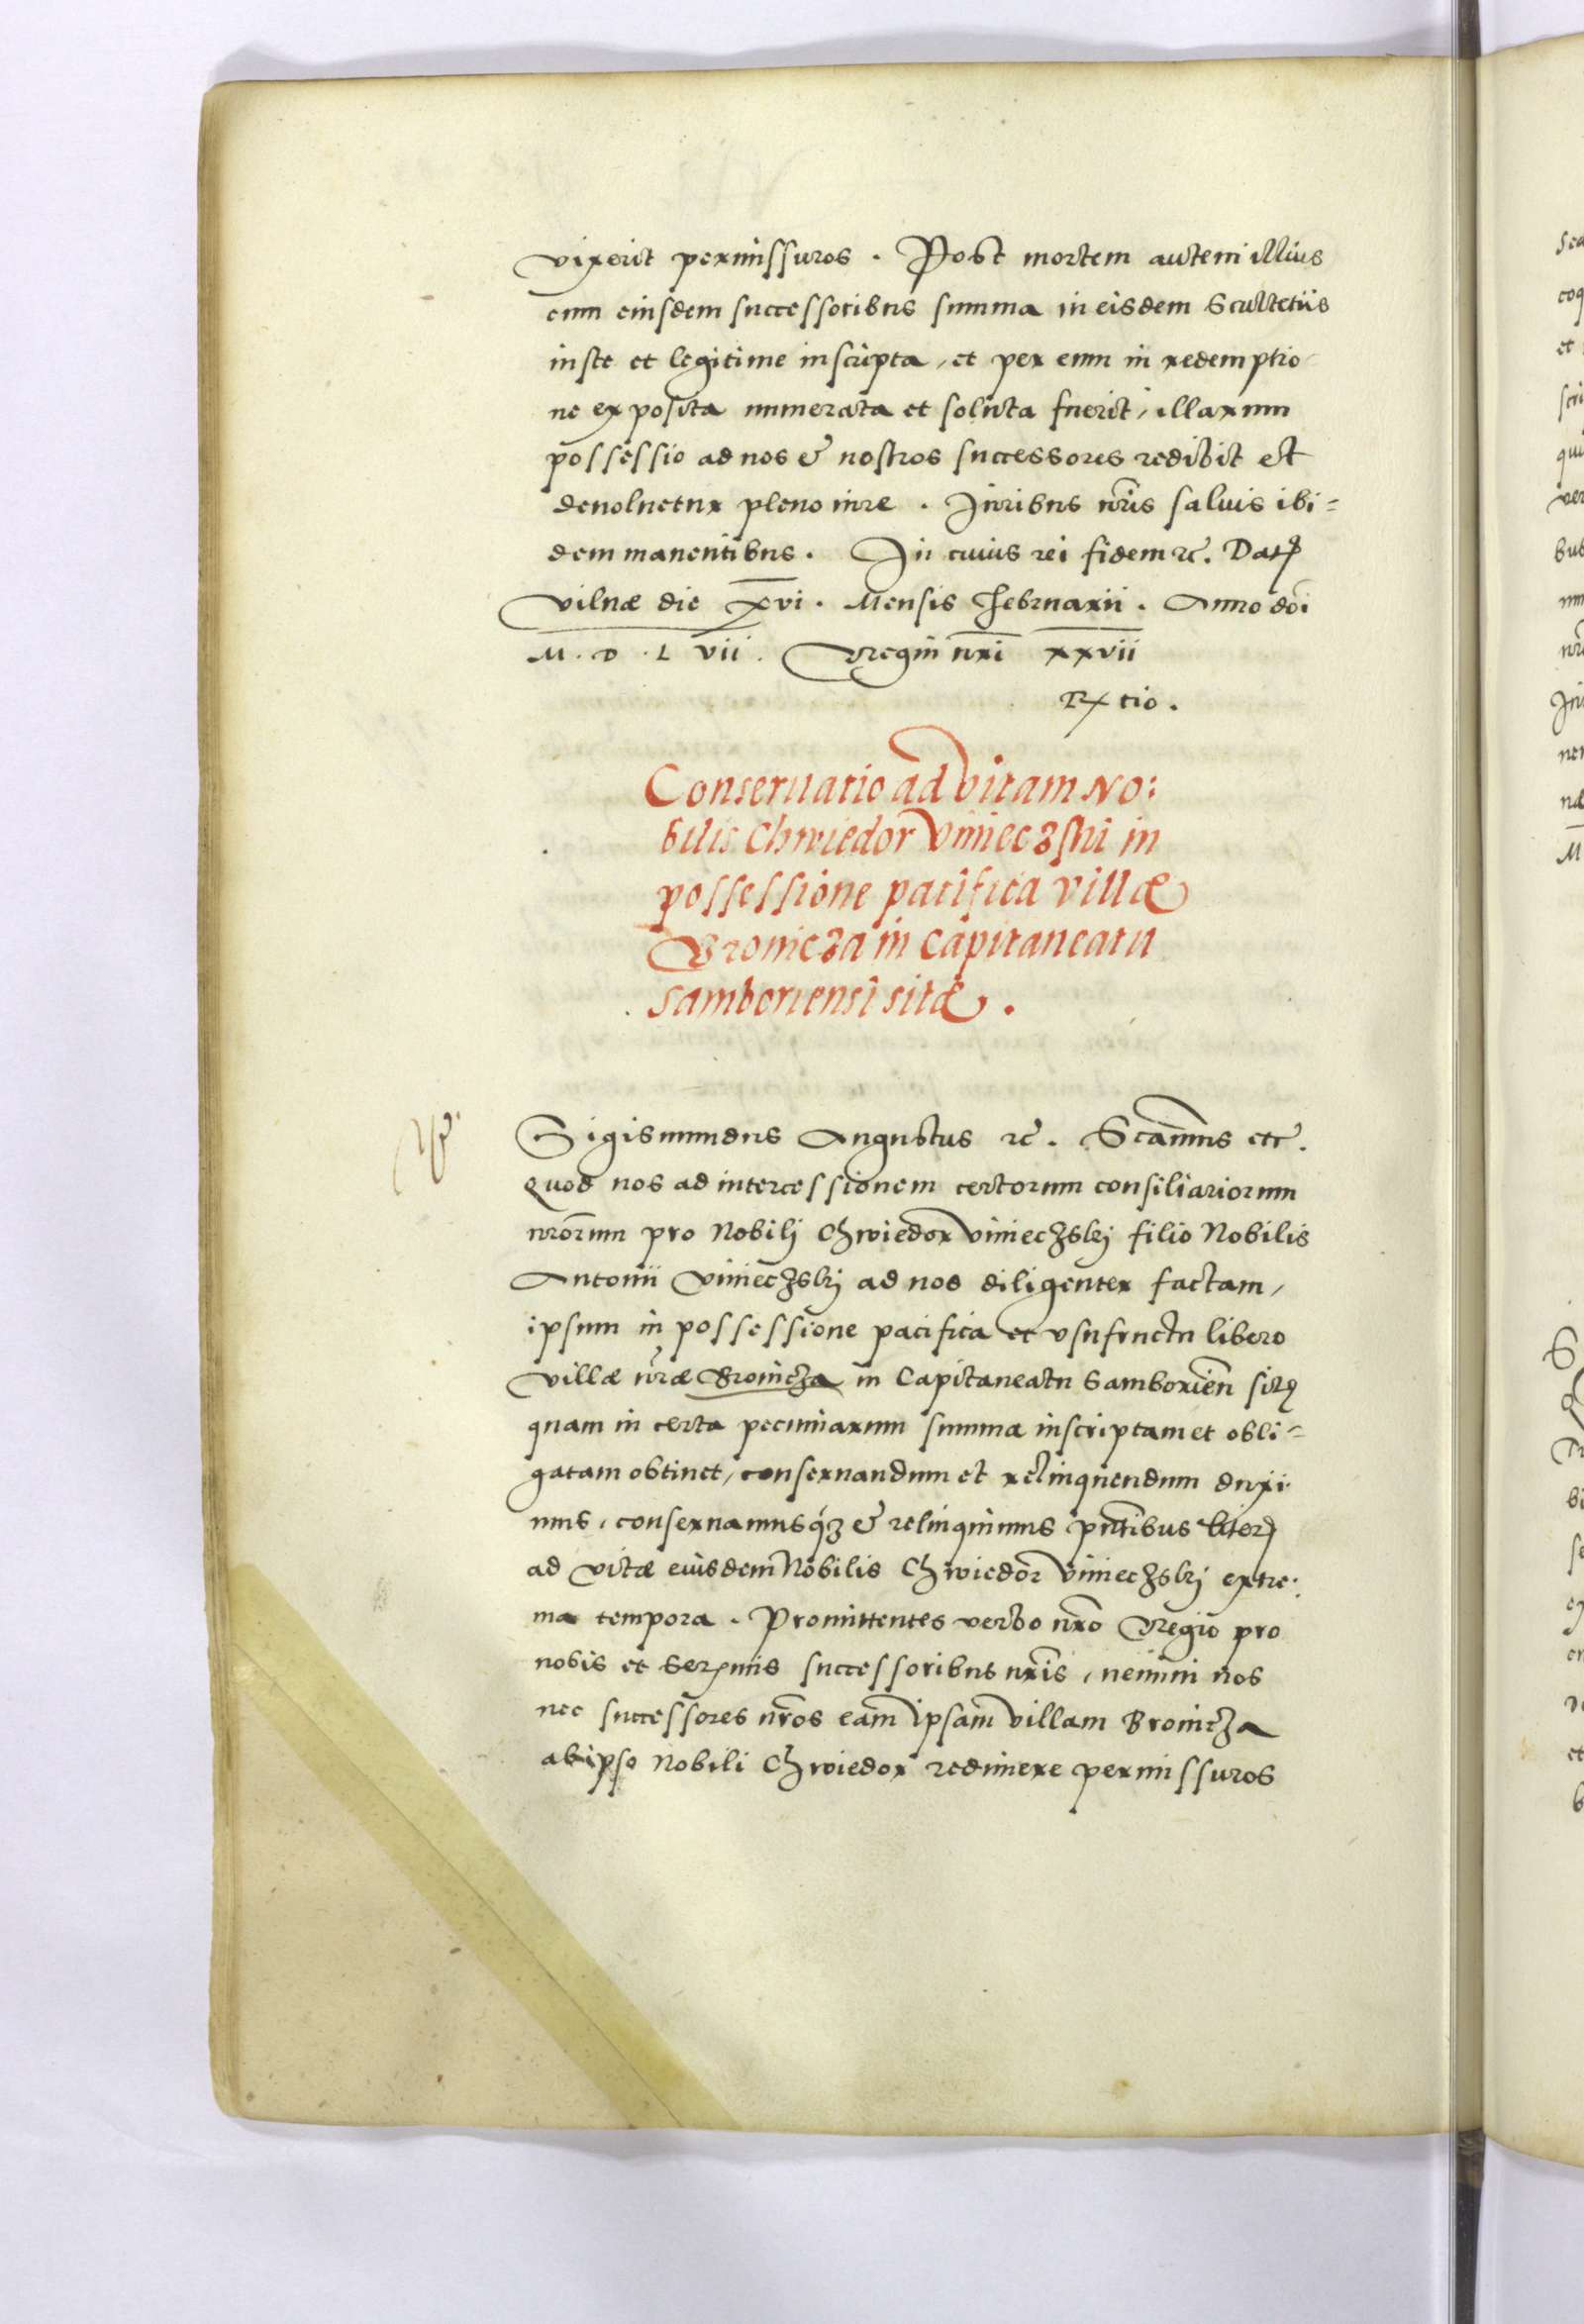 vixerit permissuros. Post mortem autem illius
cum eiusdem successoribus summa in eisdem Scultetiis
iuste et legitime inscripta, et per eum in redemptio
ne exposita numerata et soluta fuerit, illarum
possessio ad nos & nostros successores redibit et
deuoluetur pleno iure. Iuribus nr̃is saluis ibi=
dem manentibus. In cuius rei fidem ꝛc̃. Datꝭ
Vilnæ die xvi. Mensis Februarii. Anno dñi
M. D. L vii. Regni nr̃i xxvii
Rtio.
Conseruatio ad vitam No:
bilis Chwiedor Vinieczski in
possessione pacifica villæ
Bronicza in Capitaneatu
Samboriensi sitæ.
Sigismundus Augustus ꝛc̃. Sc̃amus etc̃.
Quod nos ad intercessionem certorum consiliariorum
nr̃orum pro Nobili Chwiedor Viniechzskj filio Nobilis
Antonii Viniechzskj ad nos diligenter factam,
ipsum in possessione pacifica et vsufructu libero
villæ nr̃æ Broniczа in Capitaneatu Samborien̄ sitę
quam in certa pecuniarum summa inscriptam et obli=
gatam obtinet, conseruandum et relinquendum duxi
mus, conseruamusqꝫ & relinquimus pñtibus literꝭ
ad vitæ eiusdem Nobilis Chwiedor Viniechzskj extre:
ma tempora. Promittentes verbo nr̃o Regio pro
nobis et Serẽmis successoribus nr̃is, nemini nos
nec successores nr̃os eam ipsam villam Bronicza
ab ipso Nobili Chwiedor redimere permissuros